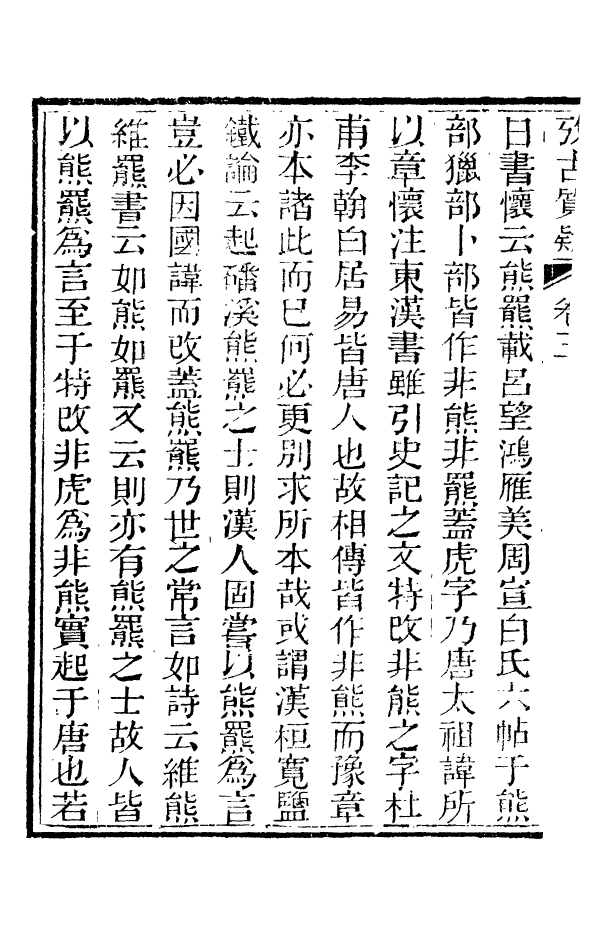 攷古質疑 卷三
日書懷云熊羆載呂望鴻雁美周宣白氏六帖于熊
部獵部卜部皆作非熊非羆蓋虎字乃唐太祖諱所
以章懷注東漢書雖引史記之文特改非熊之字杜
甫李翰白居易皆唐人也故相傳皆作非熊而豫章
亦本諸此而已何必更別求所本哉或謂漢桓寬鹽
鐵論云起磻溪熊羆之士則漢人固嘗以熊羆為言
豈必因國諱而改蓋熊羆乃世之常言如詩云維熊
維羆書云如熊如羆又云則亦有熊羆之士故人皆
以熊羆為言至于特改非虎為非熊實起于唐也若